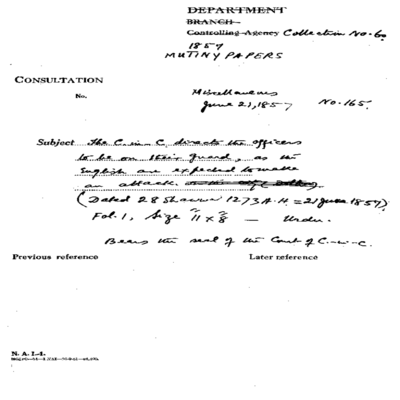 DEPARTMENT
BRANCH
Controlling Agency Collection No. 60
1857
MUTINY PAPERS
CONSULTATION
No.
Miscellaneous
June 21, 1857 No. 165.
Subject The C-in-C directs the officers
to be on their guard, as the
English are expected to make
an attack.
(Dated 28 Shawwal 1273 A.H. = 21 June 1857).
Fol. 1, Size 11" x 8" — Urdu.
Bears the seal of the Court of C-in-C.
Previous reference Later reference
N. A. I-1.